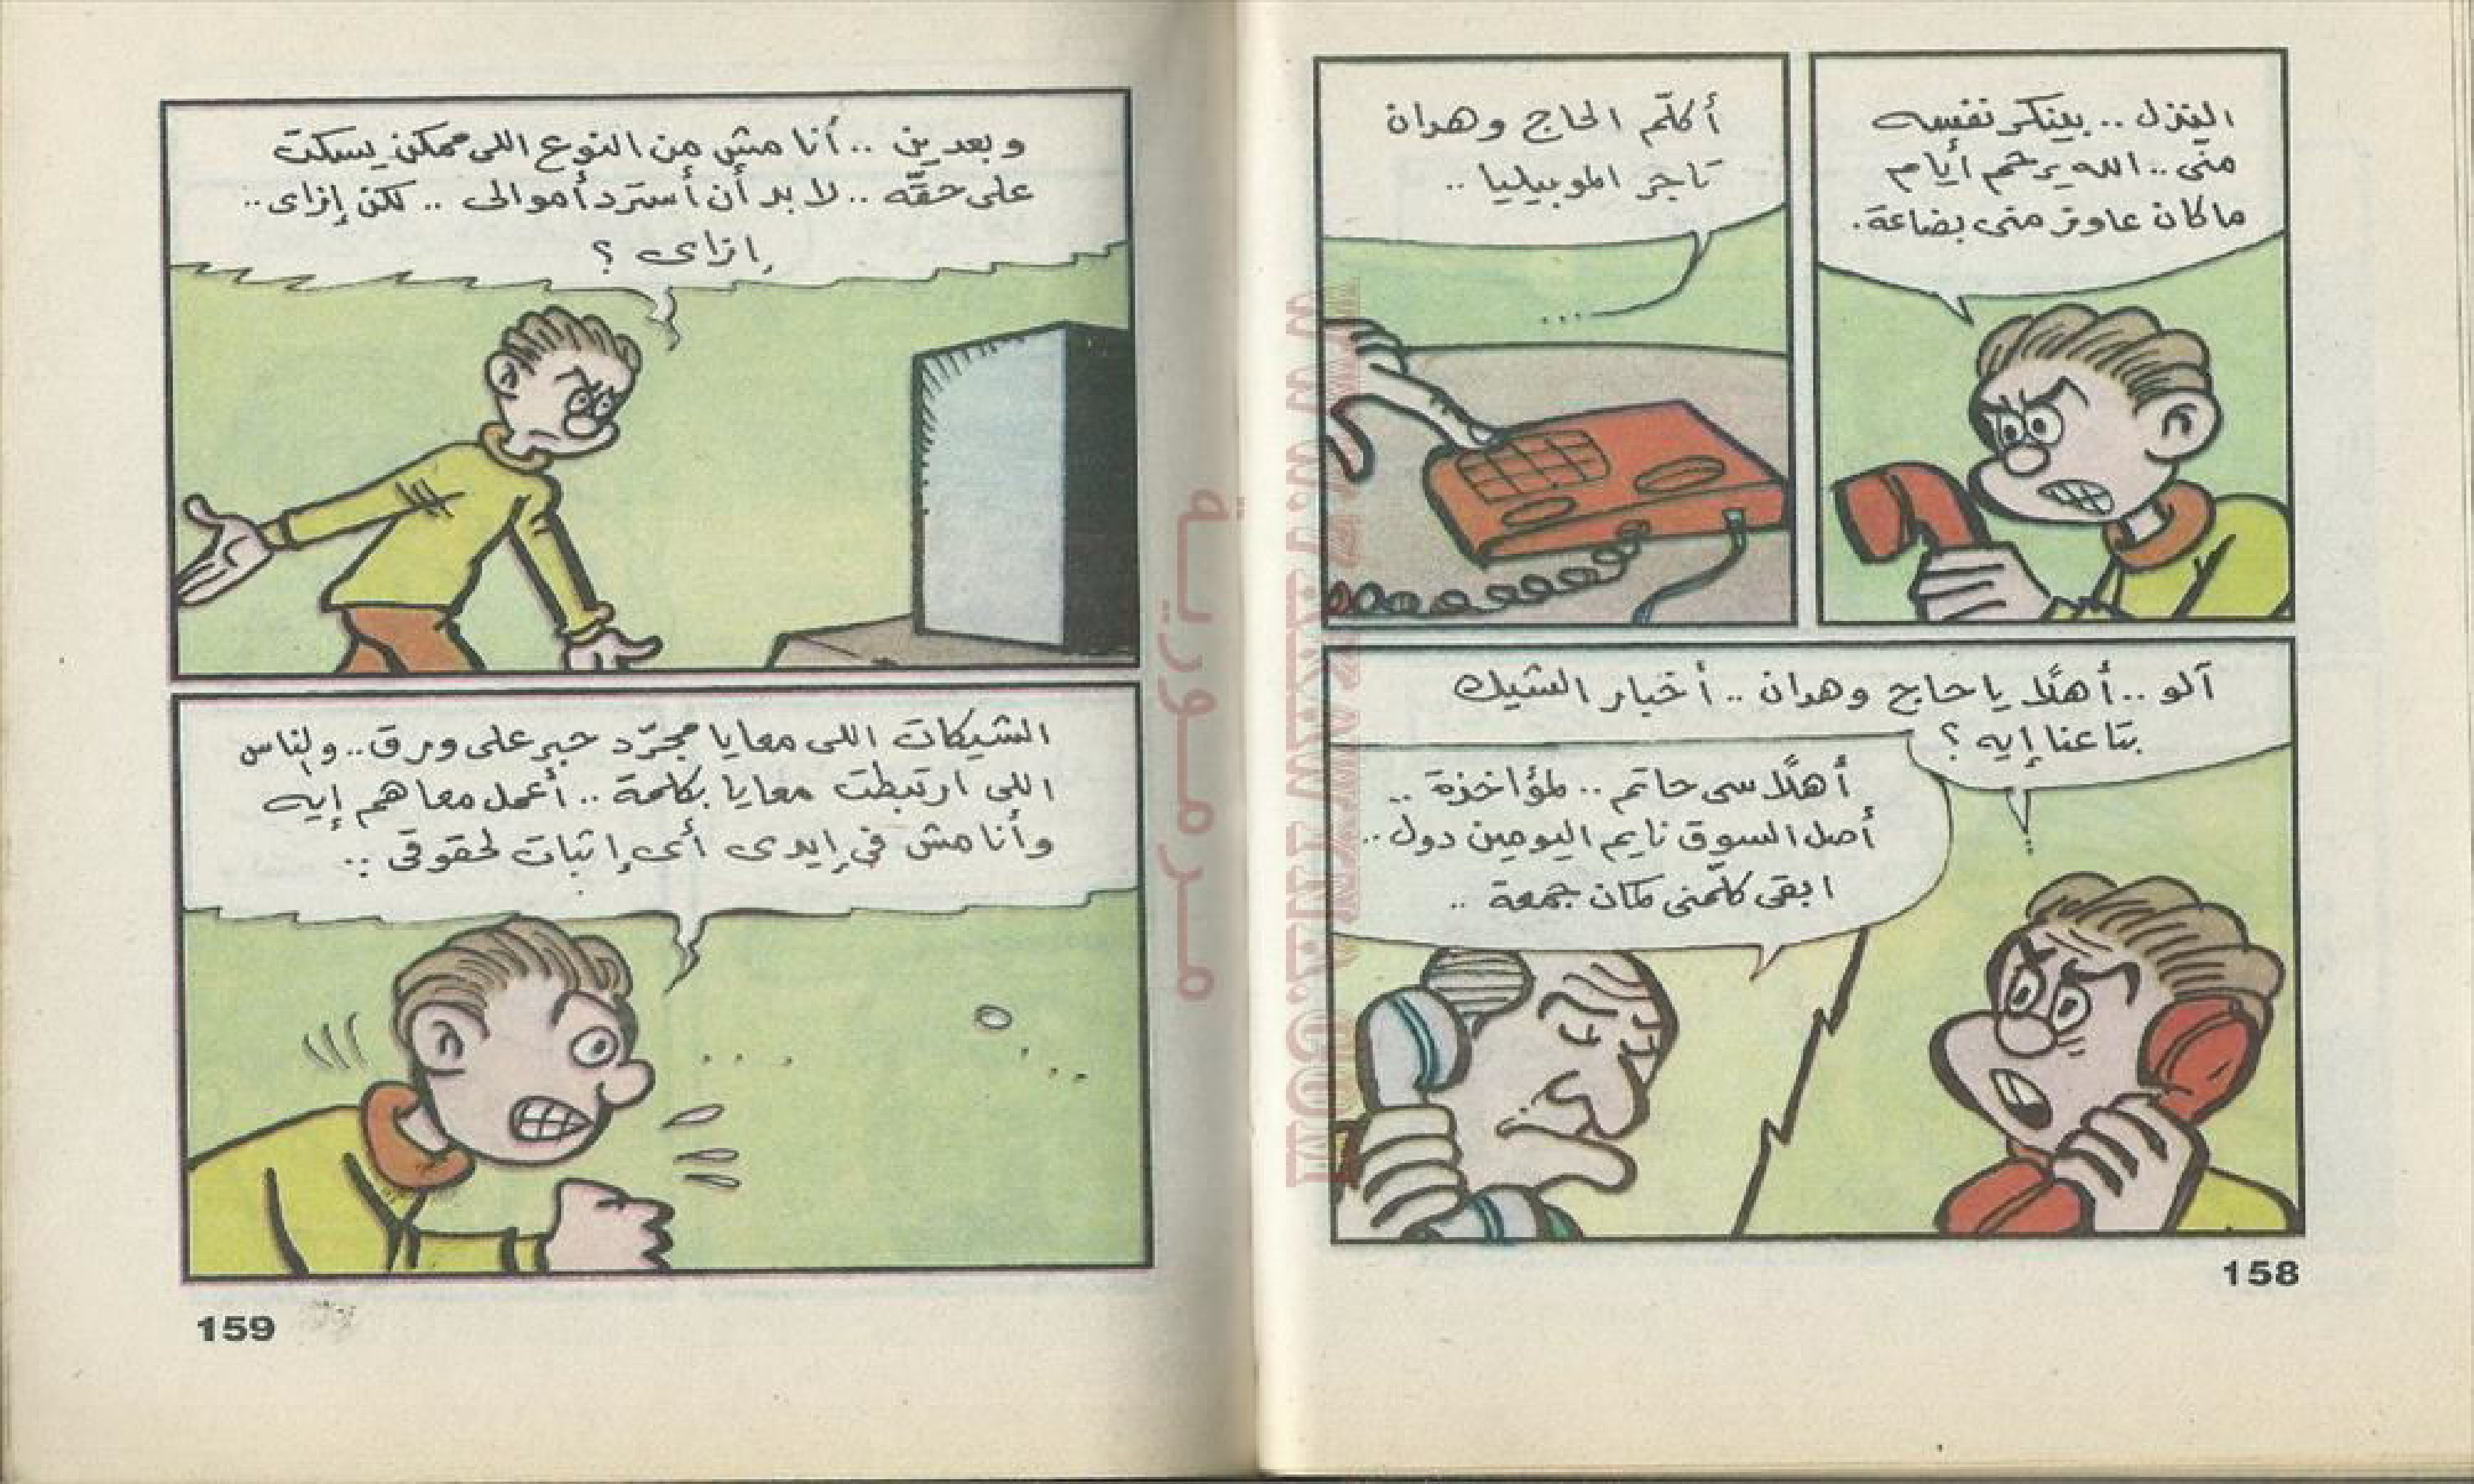 النذل .. بينكر نفسه
منى .. الله يرحم أيام
ما كان عاوز منى بضاعة.
أكلّم الحاج وهدان
تاجر الموبيليا ..
...
آلو .. أهلًا يا حاج وهدان .. أخبار الشيك
بتاعنا إيه ؟
أهلًا سى حاتم .. لمؤاخذة ..
أصل السوق نايم اليومين دول ..
ابقى كلّمنى كمان جمعة ..
158
وبعدين .. أنا مش من النوع اللى ممكن يسكت
على حقّه .. لا بد أن أسترد أموالى .. لكن إزاى ..
إزاى ؟
الشيكات اللى معايا مجرّد حبر على ورق .. والناس
اللى ارتبطت معايا بكلمة .. أعمل معاهم إيه
وأنا مش فى إيدى أى إثبات لحقوقى ..
159
مرمورية